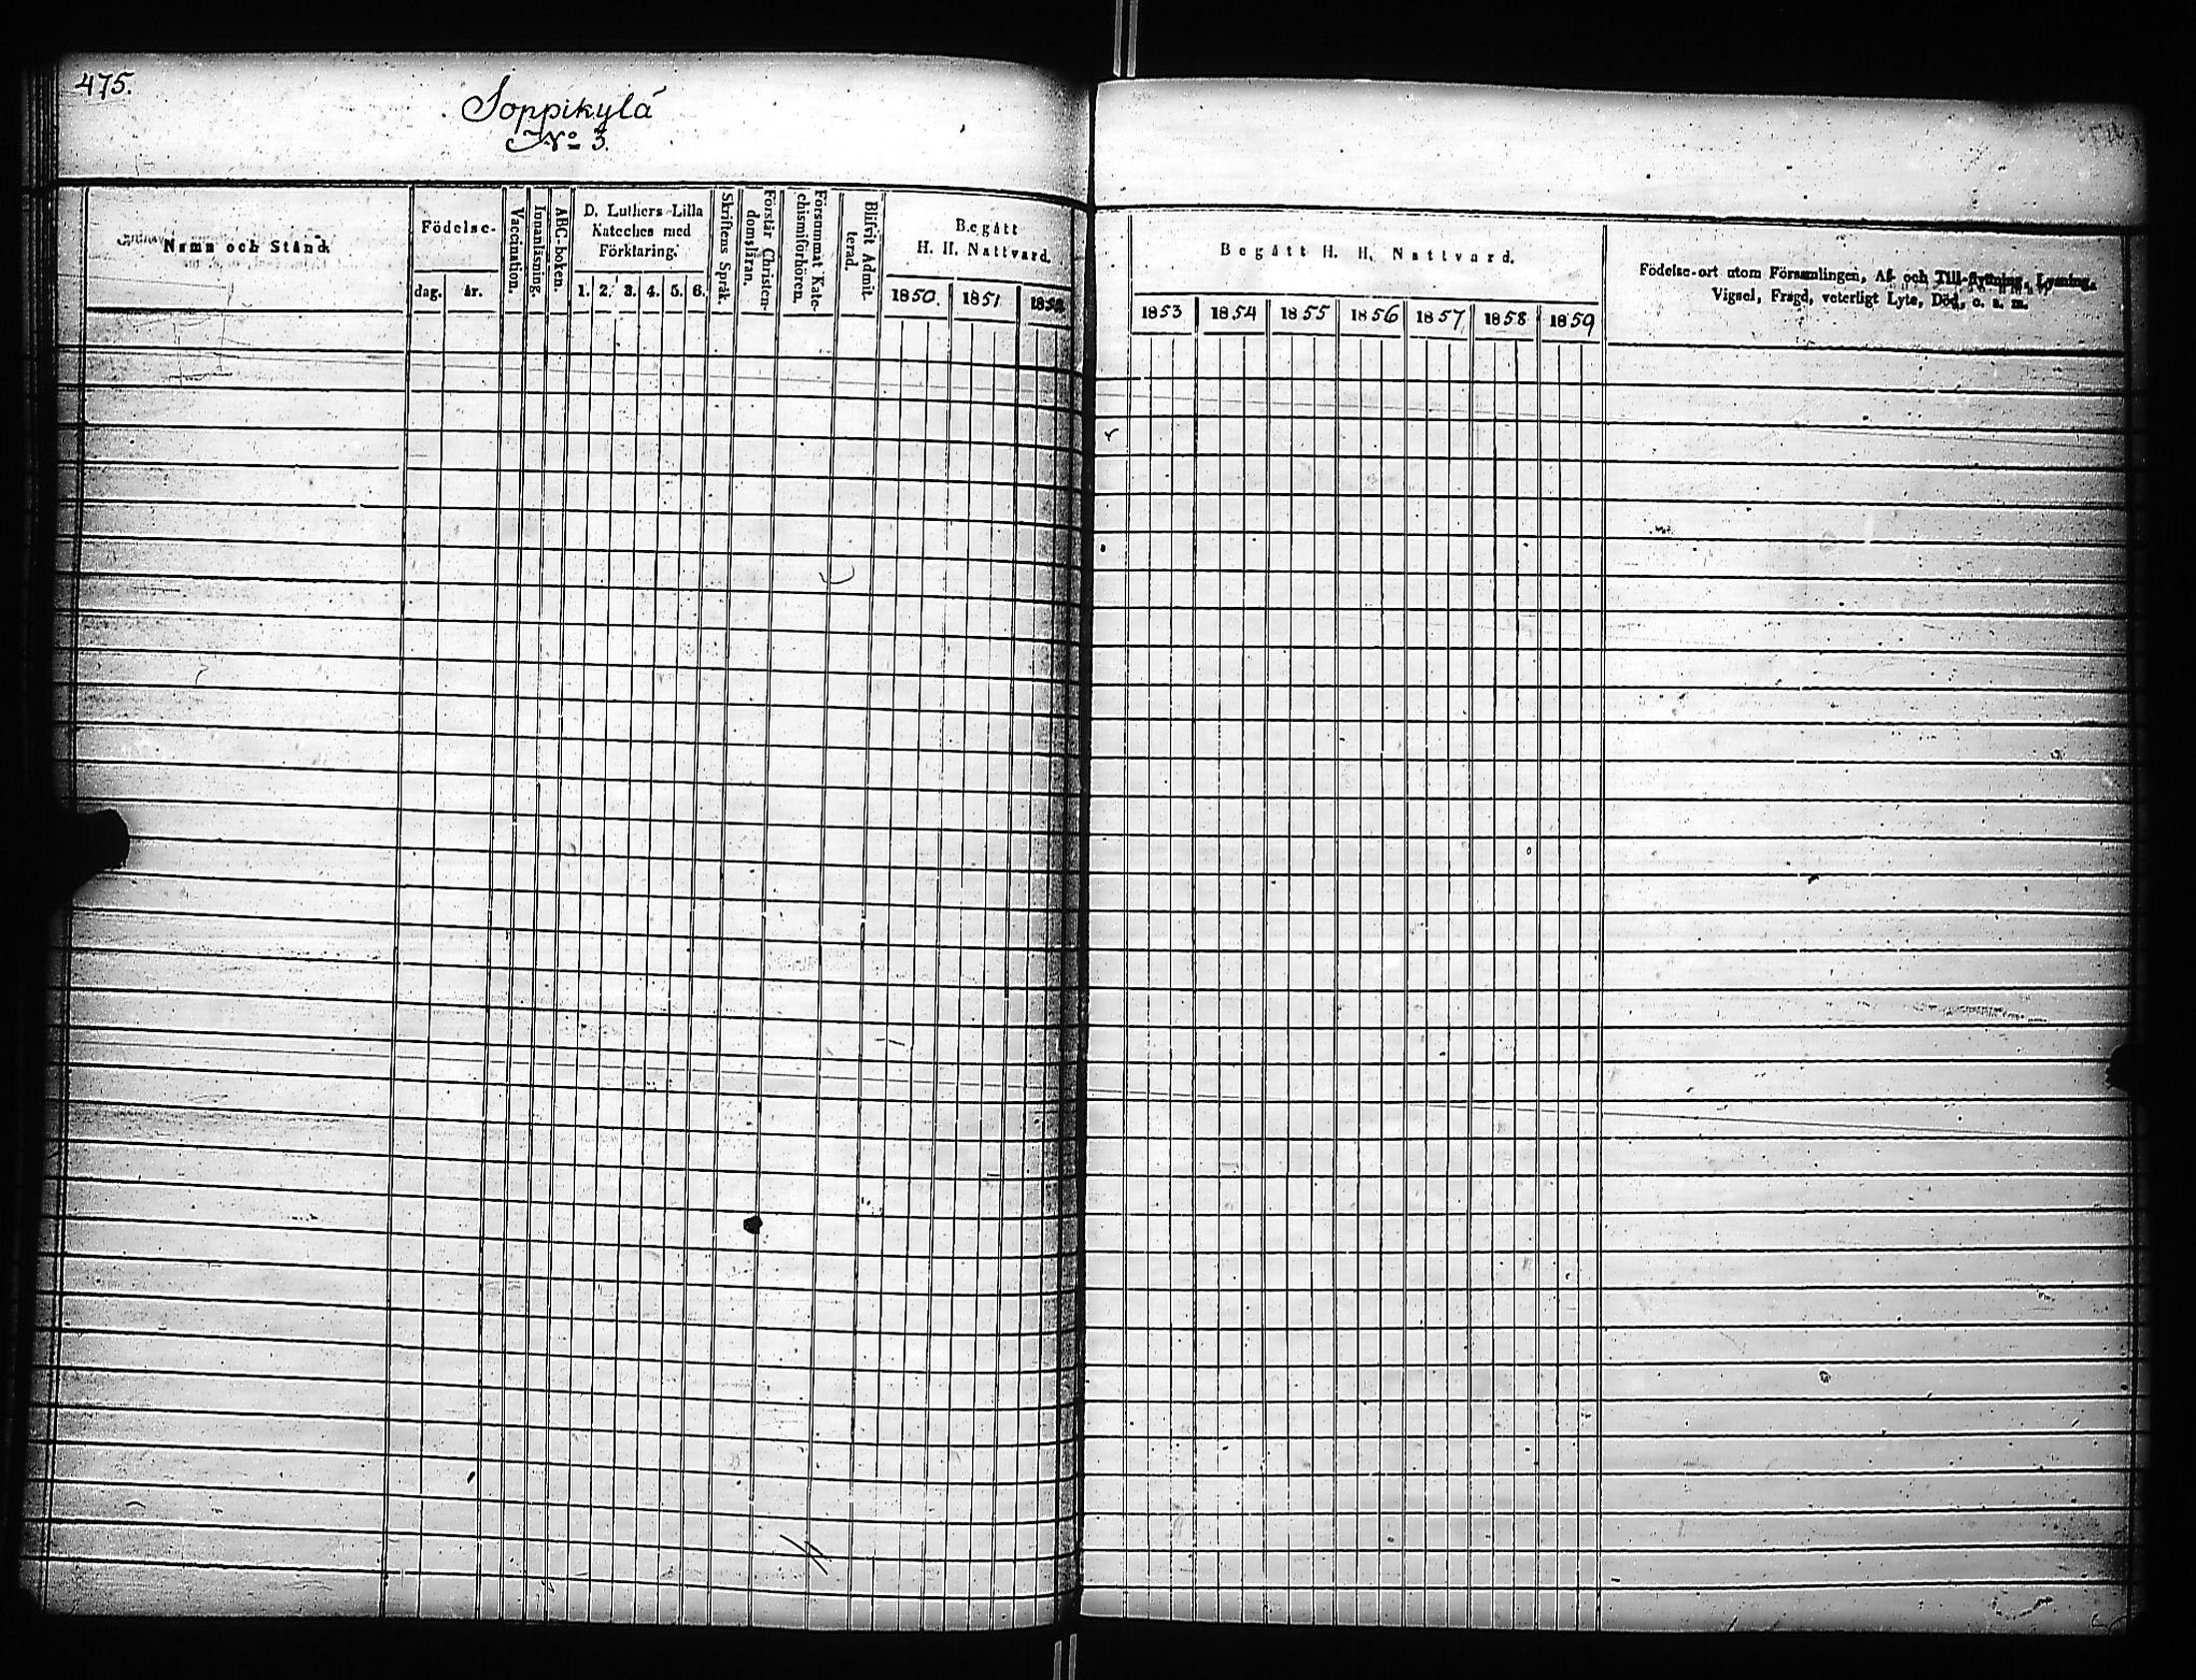 475.
Soppikylä
No 3.
Namn och Stånd.
Födelse-
dag. år.
Vaccination.
Innanläsning.
ABC-boken.
D. Luthers Lilla
Kateches med
Förklaring.
1. 2. 3. 4. 5. 6.
Skriftens Språk.
Förstår Christen-
domsläran.
Försummat Kate-
chismiförhören.
Blifvit Admit-
terad.
Begått
H. H. Nattvard.
1850. 1851 1852
Begått H. H. Nattvard.
1853 1854 1855 1856 1857 1858 1859
Födelse-ort utom Församlingen, Af- och Till-flyttning, Lysning,
Vigsel, Frägd, veterligt Lyte, Död, o. s. m.